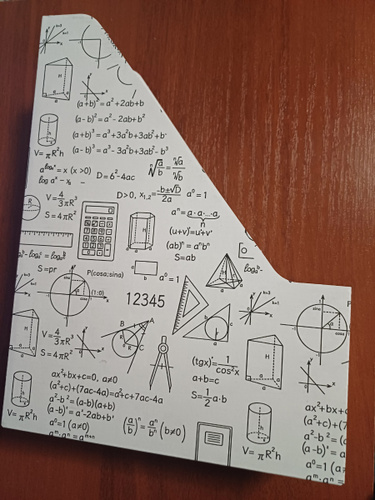 (a+b)² = a²+2ab+b
(a-b)² = a²-2ab+b²
(a+b)³ = a³+3a²b+3ab²+b³
(a-b)³ = a³-3a²b+3ab²-b³
V=πR²h
(x>0)
D=6²-4ac
ⁿ√a/b = ⁿ√a/ⁿ√b
D>0, x₁,₂=-b±√D/2a a⁰=1
V=4/3πR³
S=4πR²
aⁿ=a·a·...·a
n
(u+v)'=u'+v'
(ab)ⁿ=aⁿbⁿ
S=ab
S=pr
P(cosa;sina)
(1:0)
a⁰=1
12345
V=4/3πR³
S=4πR²
(tgx)'=1/cos²x
a+b=c
S=1/2a·b
ax²+bx+c=0, a≠0
(a²+c)+(7ac-4a)=a²+c+7ac-4a
a²-b²=(a-b)(a+b)
(a-b)²=a²-2ab+b²
a⁰=1 (a≠0)
(a/b)ⁿ=aⁿ/bⁿ (b≠0)
V=πR²h
V=πR²h
ax²+bx+c
(a²+c)+(7
a²-b²=(a
(a-b)²=a
a⁰=1 (a